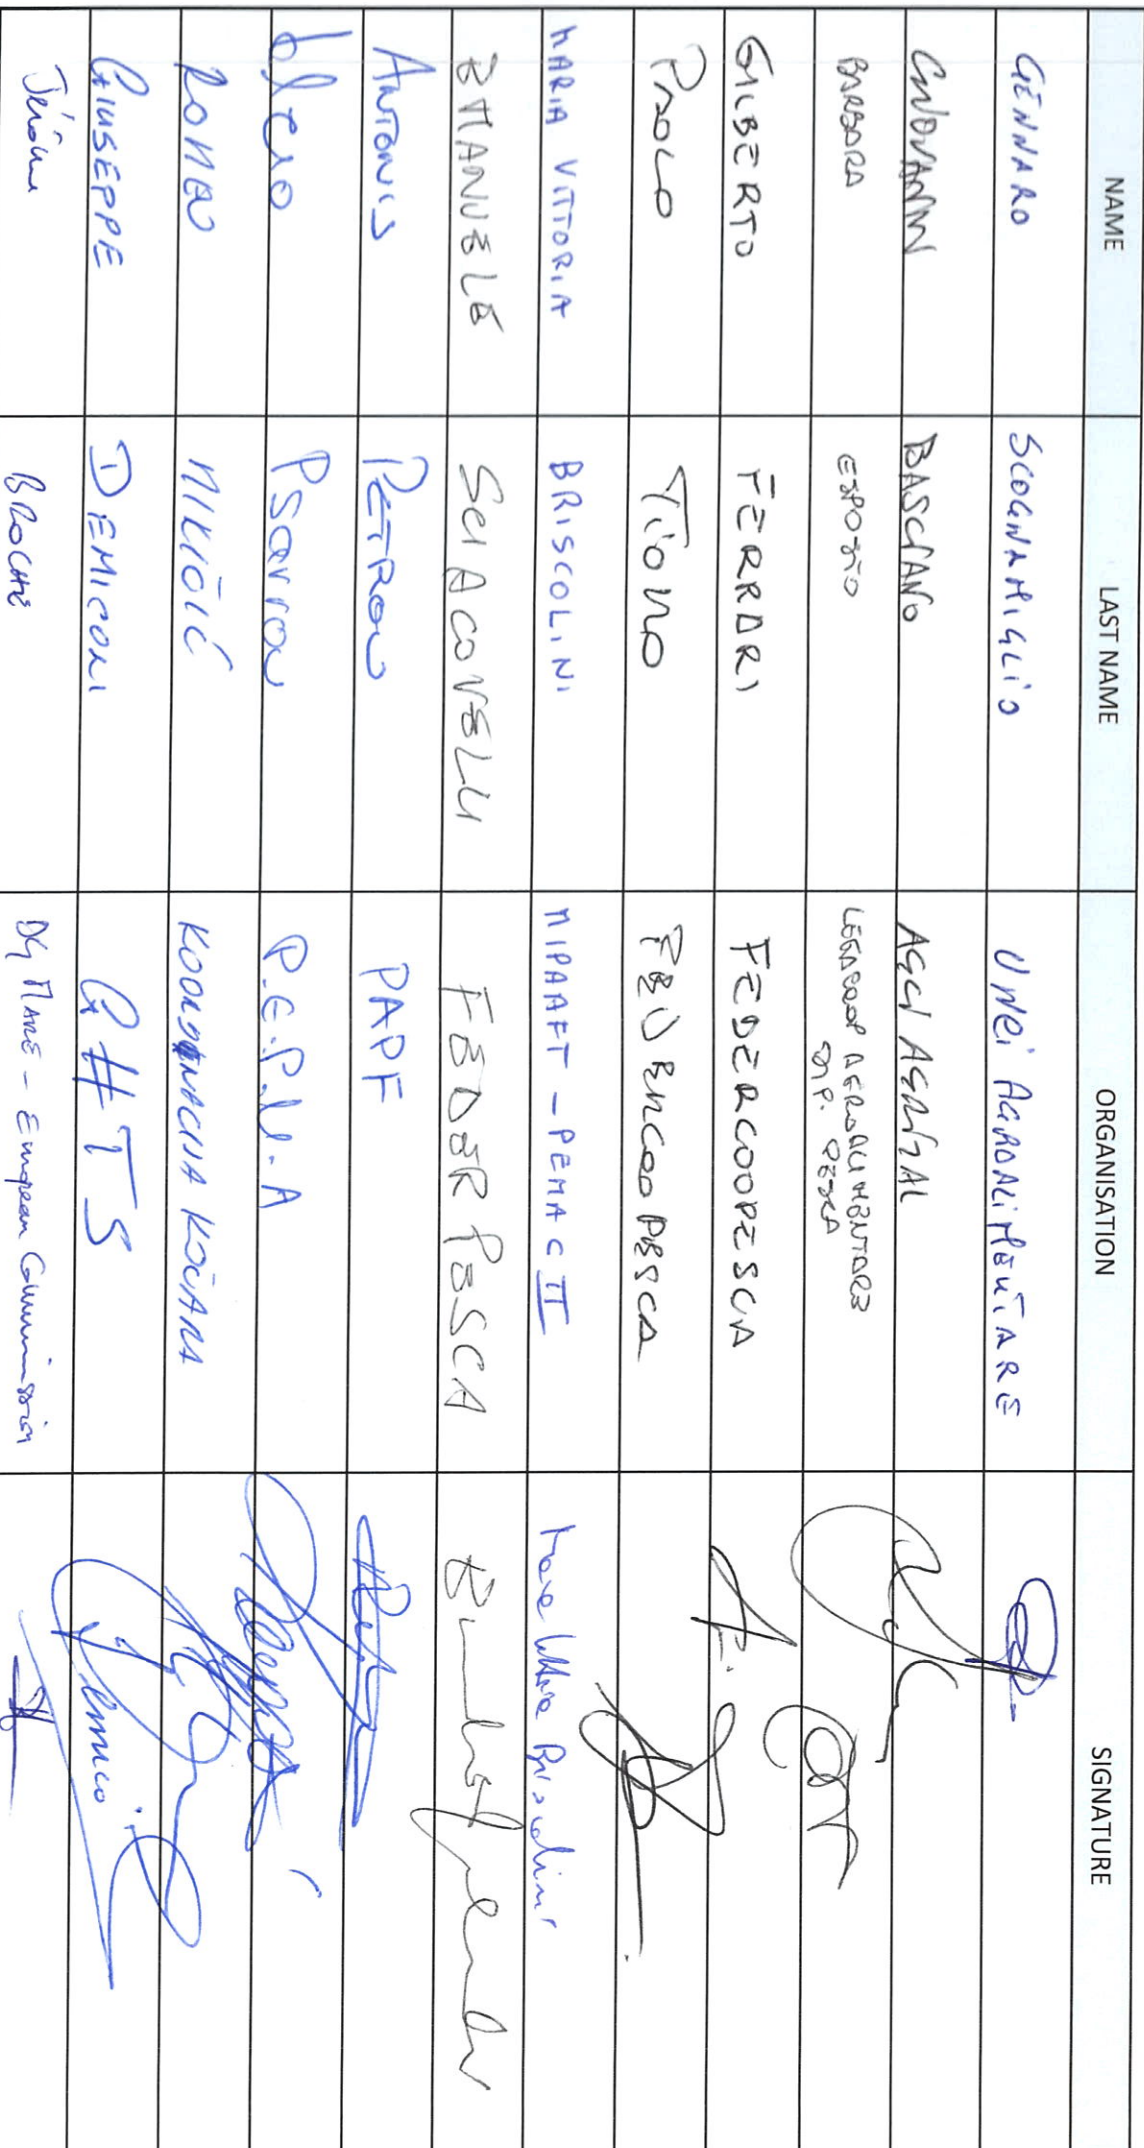 NAME LAST NAME ORGANISATION SIGNATURE
GENNARO SCOGNAMIGLIO UNCI AGROALIMENTARE
GIOVANNI BASCIANO AGCI AGRITAL
BARBARA ESPOSTO LEGACOOP AGROALIMENTARE
DIP. PESCA
GILBERTO FERRARI FEDERCOOPESCA
PAOLO TIOMO FEDERCOOPESCA
MARIA VITTORIA BRISCOLINI MIPAAFT - PEMAC III Maria Vittoria Briscolini
EMANUELE SCIACOVELLI FEDERPESCA
ANTONIS PETROU PAPF
PSARROU P.E.P.M.A
ROMEO NIKIČIĆ KOORDINACIJA KOČARA
GIUSEPPE DEMICOLI GHTS
Jérôme BROCHE DG MARE - European Commission